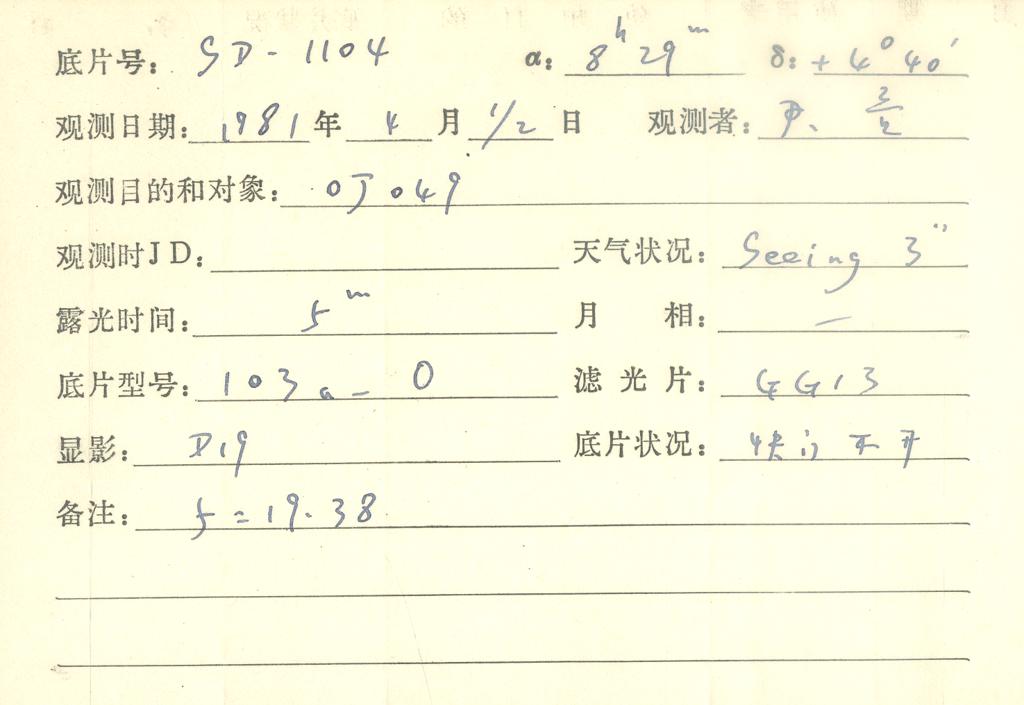 底片号: SD-1104 α: 8h 29m δ: +4° 40′
观测日期: 1981 年 4 月 1/2 日 观测者:
观测目的和对象: OJ 049
观测时JD: 天气状况: Seeing 3″
露光时间: 5m 月 相: —
底片型号: 103a-O 滤光片: GG13
显影: D19 底片状况: 快门不开
备注: f=19.38